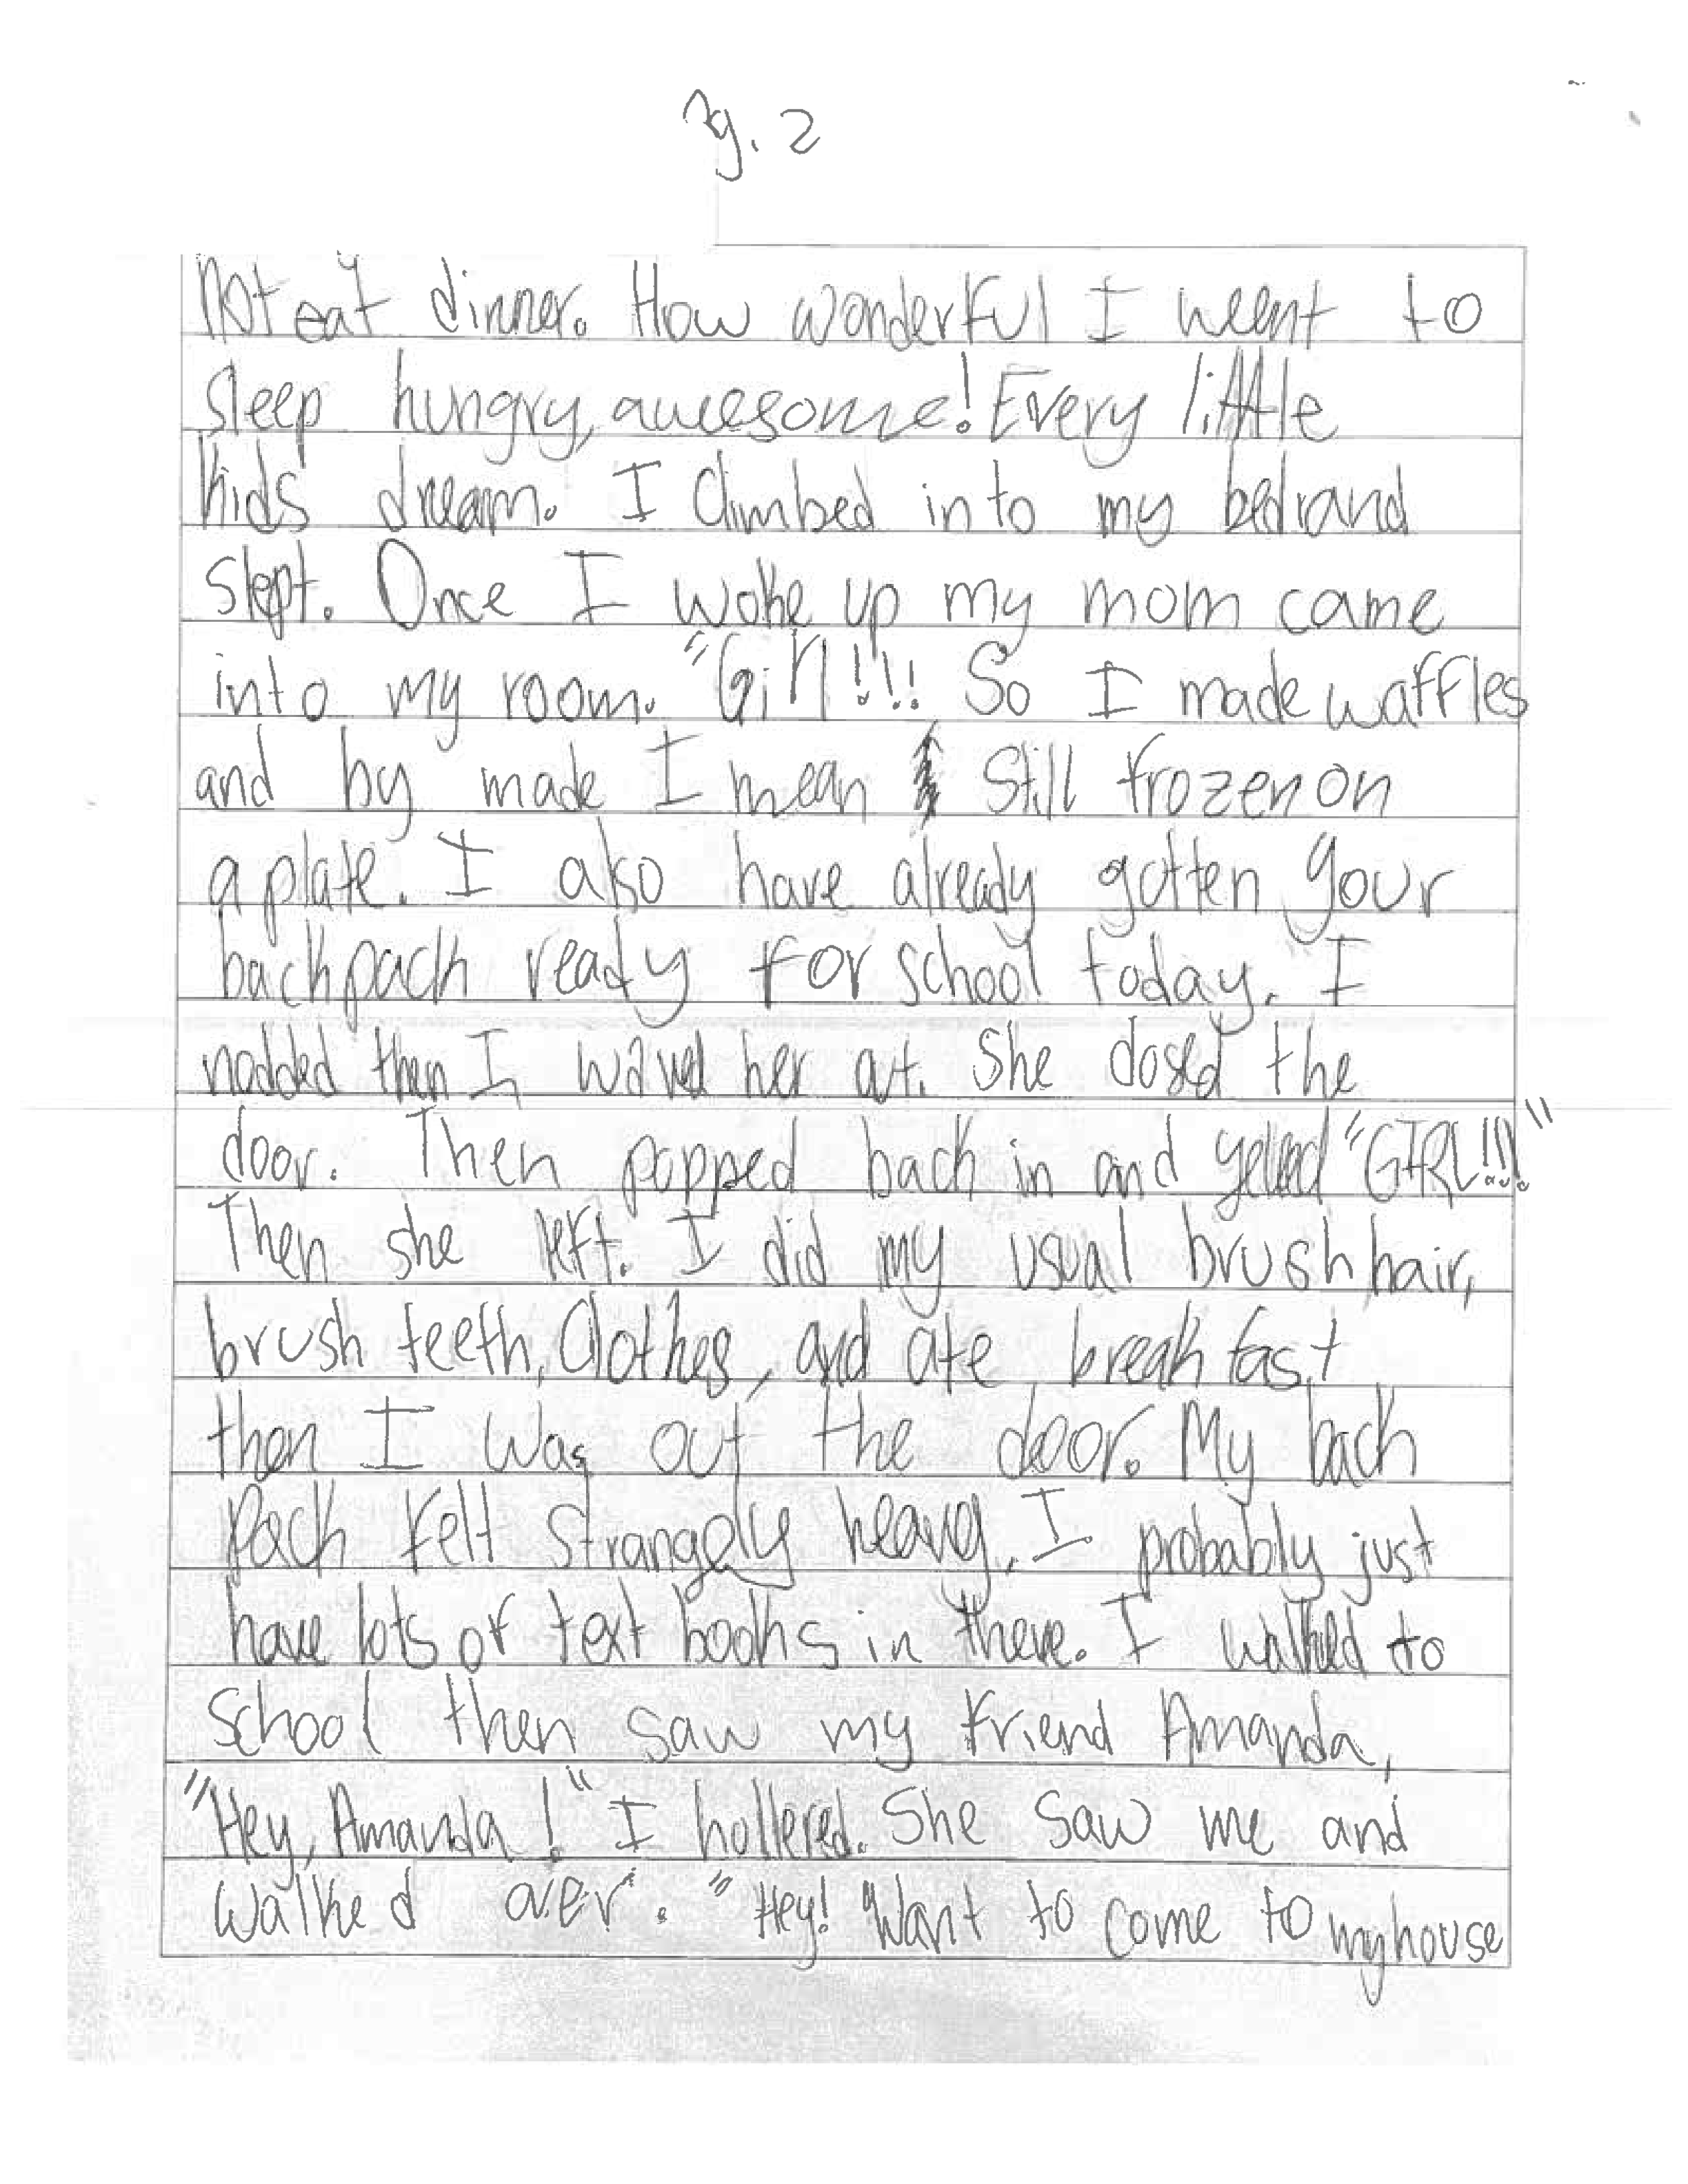 Pg. 2
not eat dinner. How wonderful I went to
sleep hungry, awesome! Every little
kids dream. I climbed into my bed and
slept. Once I woke up my mom came
into my room. "Girl!!! So I made waffles
and by made I mean still frozen on
a plate. I also have already gotten your
backpack ready for school today. I
nodded then I waved her out. She closed the
door. Then popped back in and yelled "GIRL!!!"
Then she left. I did my usual brush hair,
brush teeth, Clothes, and ate breakfast
then I was out the door. My back
pack felt strangely heavy. I probably just
have lots of text books in there. I walked to
school then saw my friend Amanda,
"Hey, Amanda!" I hollered. She saw me and
walked over. "Hey! Want to come to my house